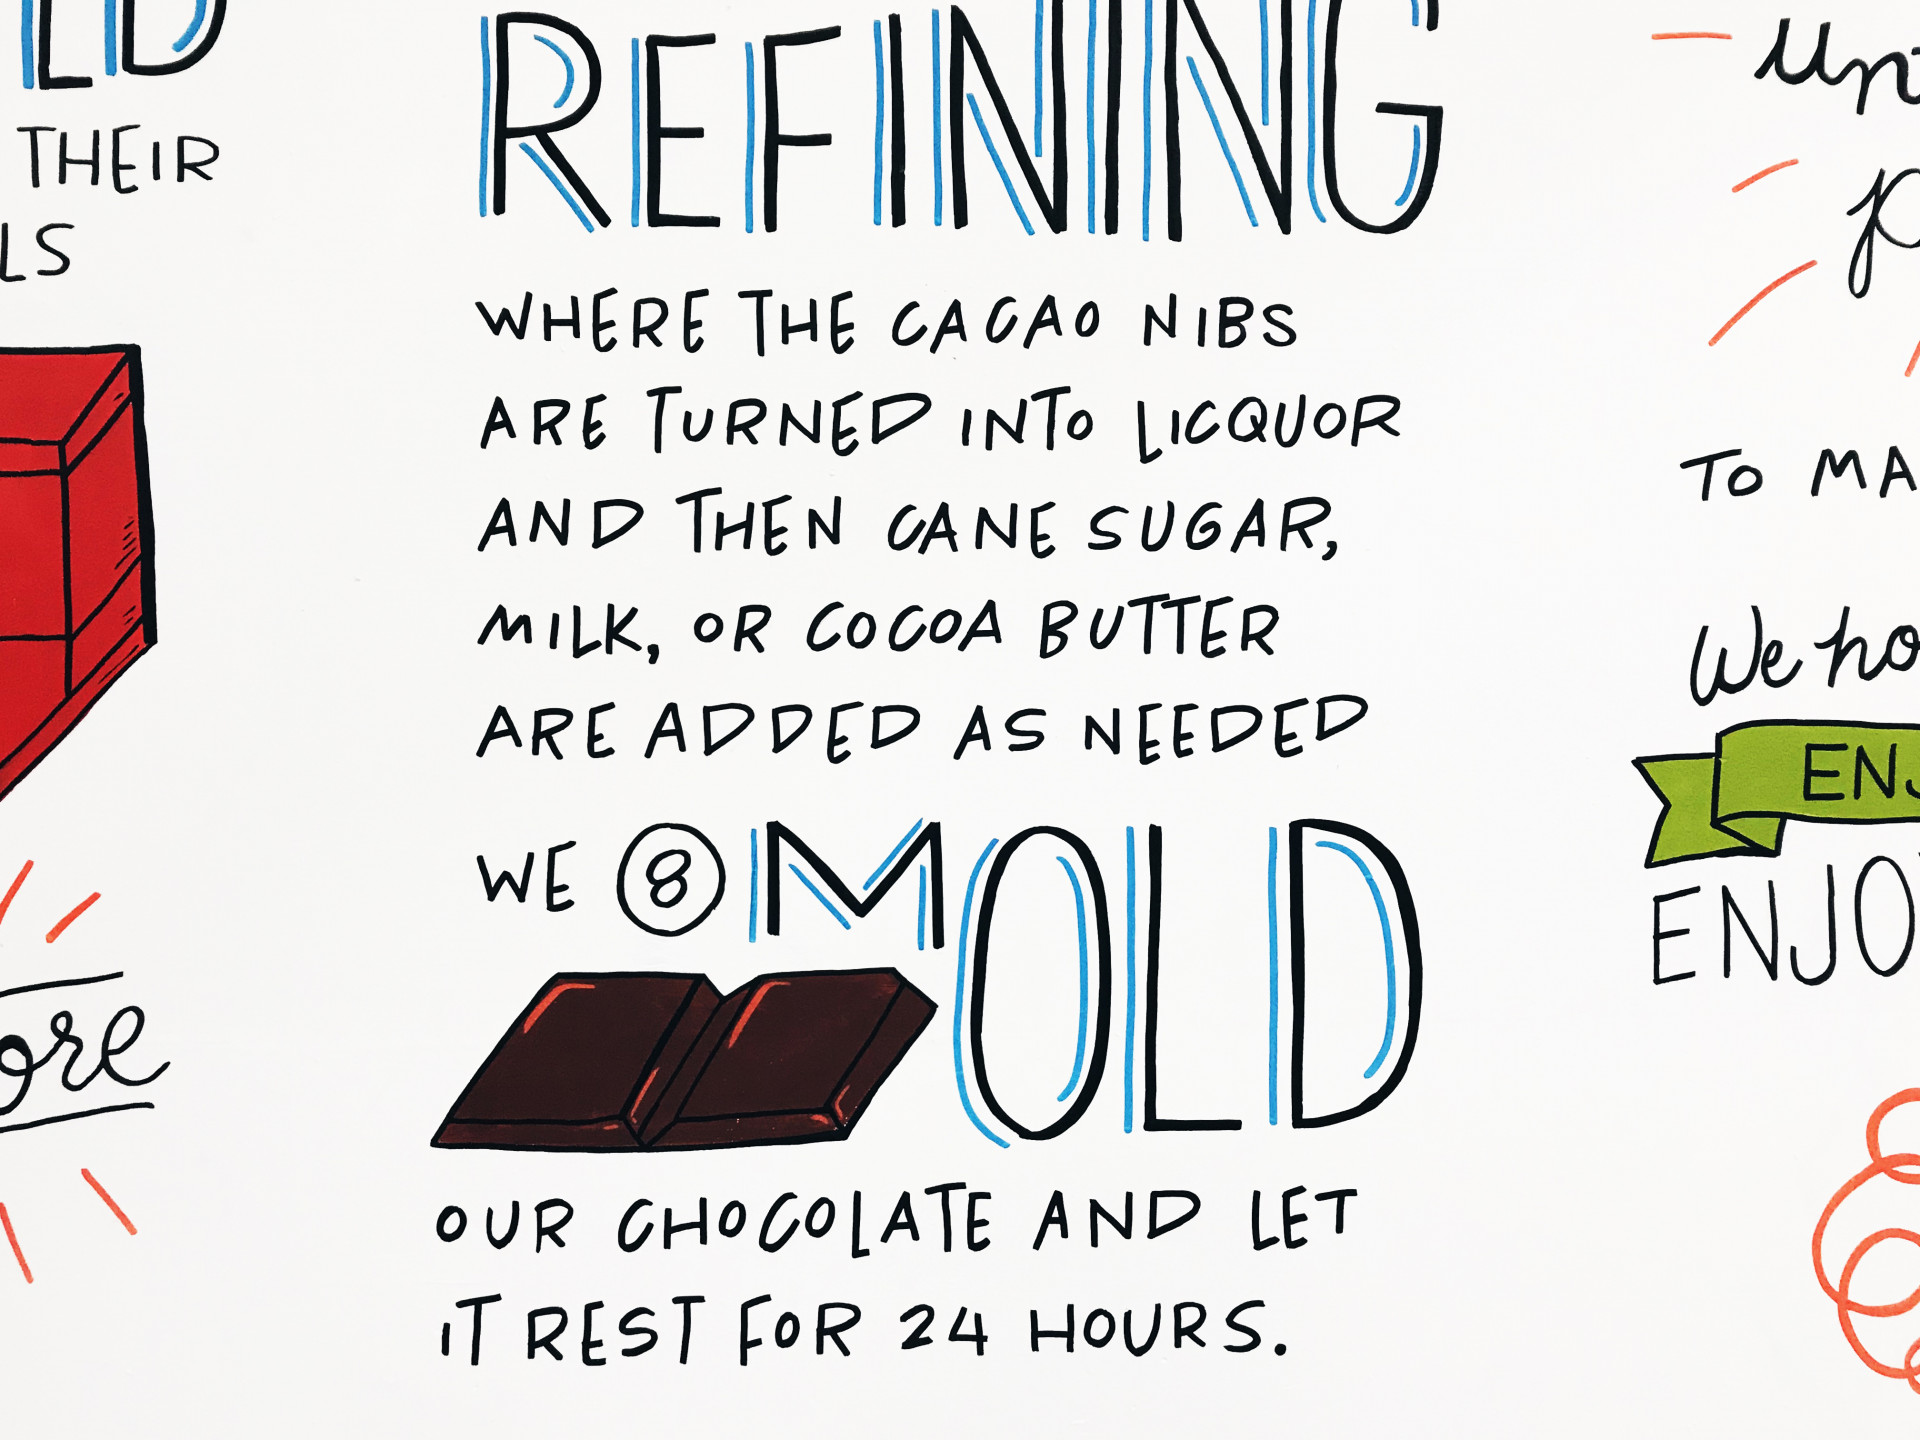 LD
THEIR
LS
ore
REFINING
WHERE THE CACAO NIBS
ARE TURNED INTO LICQUOR
AND THEN CANE SUGAR,
MILK, OR COCOA BUTTER
ARE ADDED AS NEEDED
WE 8 MOLD
OUR CHOCOLATE AND LET
IT REST FOR 24 HOURS.
TO MA
We ho
ENJ
ENJO